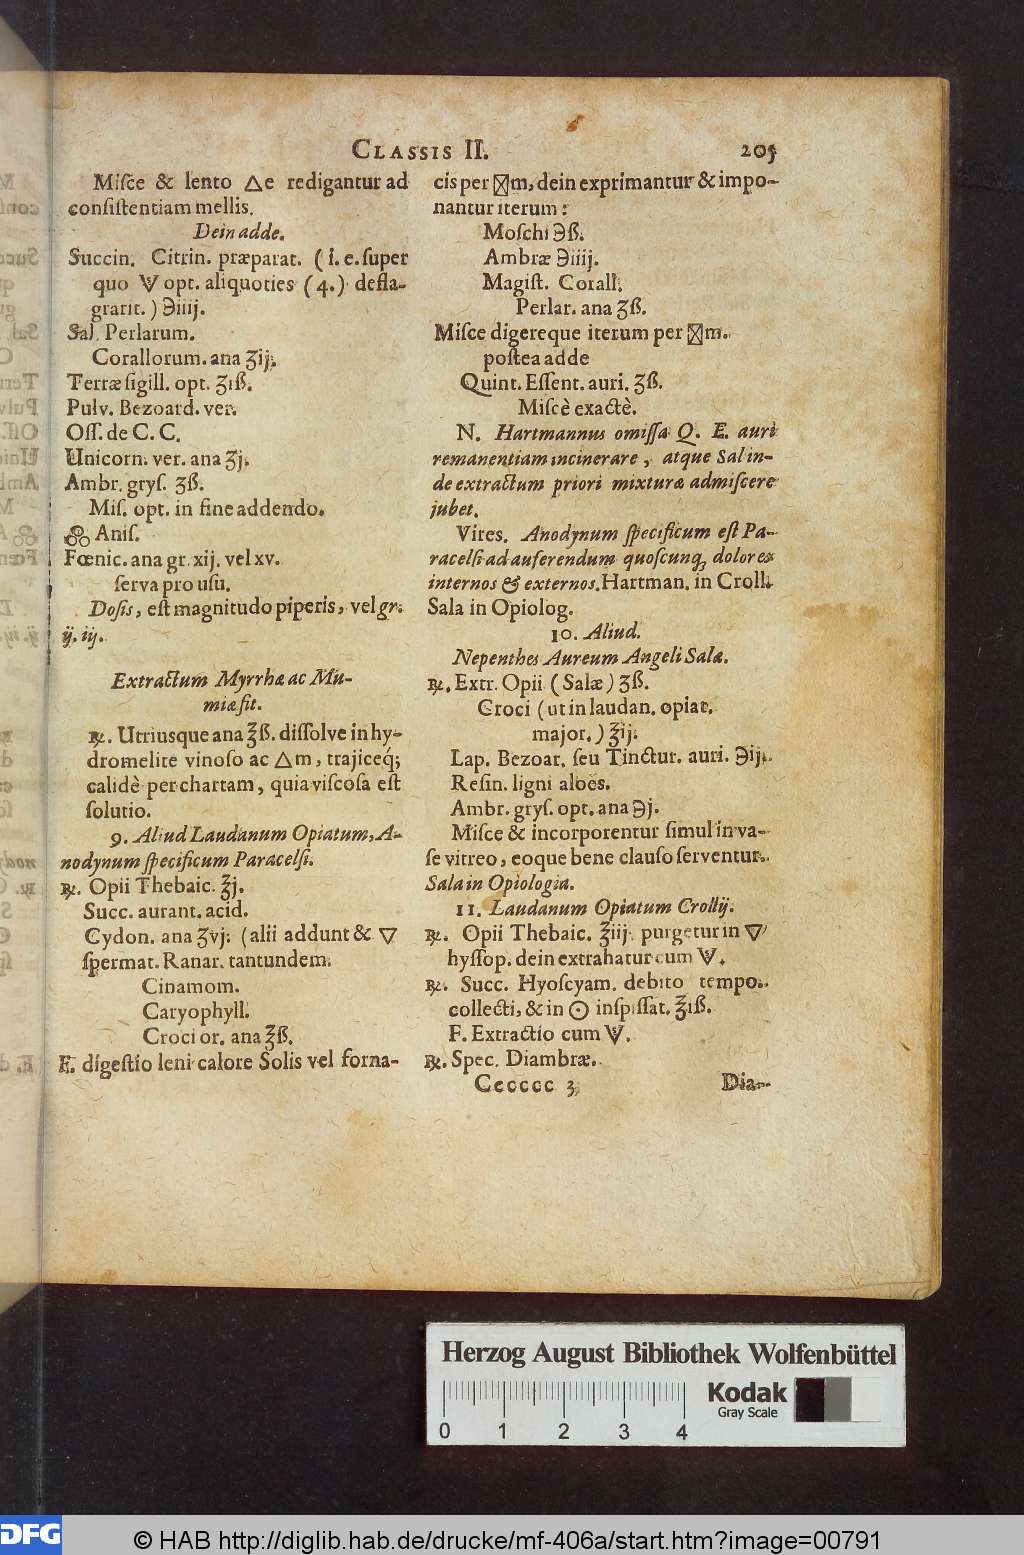 CLASSIS II. 205
Miſce & lento △e redigantur ad
conſiſtentiam mellis.
Dein adde.
Succin. Citrin. præparat. ( i. e. ſuper
quo V opt. aliquoties ( 4. ) defla-
grarit. ) ℈iiij.
Sal. Perlarum.
Corallorum. ana ʒij.
Terræ ſigill. opt. ʒiß.
Pulv. Bezoard. ver.
Oſſ. de C. C.
Unicorn. ver. ana ʒj.
Ambr. gryſ. ʒß.
Miſ. opt. in fine addendo.
Aniſ.
Fœnic. ana gr. xij. vel xv.
ſerva pro uſu.
Doſis, eſt magnitudo piperis, vel gr.
ij. iij.
Extractum Myrrhæ ac Mu-
miæ fit.
℞. Utriusque ana ℥ß. diſſolve in hy-
dromelite vinoſo ac △m, trajiceq́;
calidè per chartam, quia viſcoſa eſt
ſolutio.
9. Aliud Laudanum Opiatum, A-
nodynum ſpecificum Paracelſi.
℞. Opii Thebaic. ℥j.
Succ. aurant. acid.
Cydon. ana ʒvj. (alii addunt & ▽
ſpermat. Ranar. tantundem.
Cinamom.
Caryophyll.
Croci or. ana ℥ß.
F. digeſtio leni calore Solis vel forna-
cis per m, dein exprimantur & impo-
nantur iterum:
Moſchi ℈ß.
Ambræ ℈iiij.
Magiſt. Corall.
Perlar. ana ʒß.
Miſce digereque iterum per m.
poſtea adde
Quint. Eſſent. auri. ʒß.
Miſcè exactè.
N. Hartmannus omiſſa Q. E. auri
remanentiam incinerare, atque Sal in-
de extractum priori mixturæ admiſcere
jubet.
Vires. Anodynum ſpecificum eſt Pa-
racelſi ad auferendum quoſcunq; dolores
internos & externos. Hartman. in Croll.
Sala in Opiolog.
10. Aliud.
Nepenthes Aureum Angeli Salæ.
℞. Extr. Opii (Salæ) ʒß.
Croci (ut in laudan. opiat.
major.) ℥ij.
Lap. Bezoar. ſeu Tinctur. auri. ℈ij.
Reſin. ligni aloës.
Ambr. gryſ. opt. ana ℈j.
Miſce & incorporentur ſimul in va-
ſe vitreo, eoque bene clauſo ſerventur.
Sala in Opiologia.
11. Laudanum Opiatum Crollij.
℞. Opii Thebaic. ℥iij. purgetur in ▽
hyſſop. dein extrahatur cum V.
℞. Succ. Hyoſcyam. debito tempo.
collecti, & in ☉ inſpiſſat. ℥iß.
F. Extractio cum V.
℞. Spec. Diambræ.
Cccccc 3 Dia-
Herzog August Bibliothek Wolfenbüttel
Kodak
Gray Scale
0 1 2 3 4
DFG © HAB http://diglib.hab.de/drucke/mf-406a/start.htm?image=00791